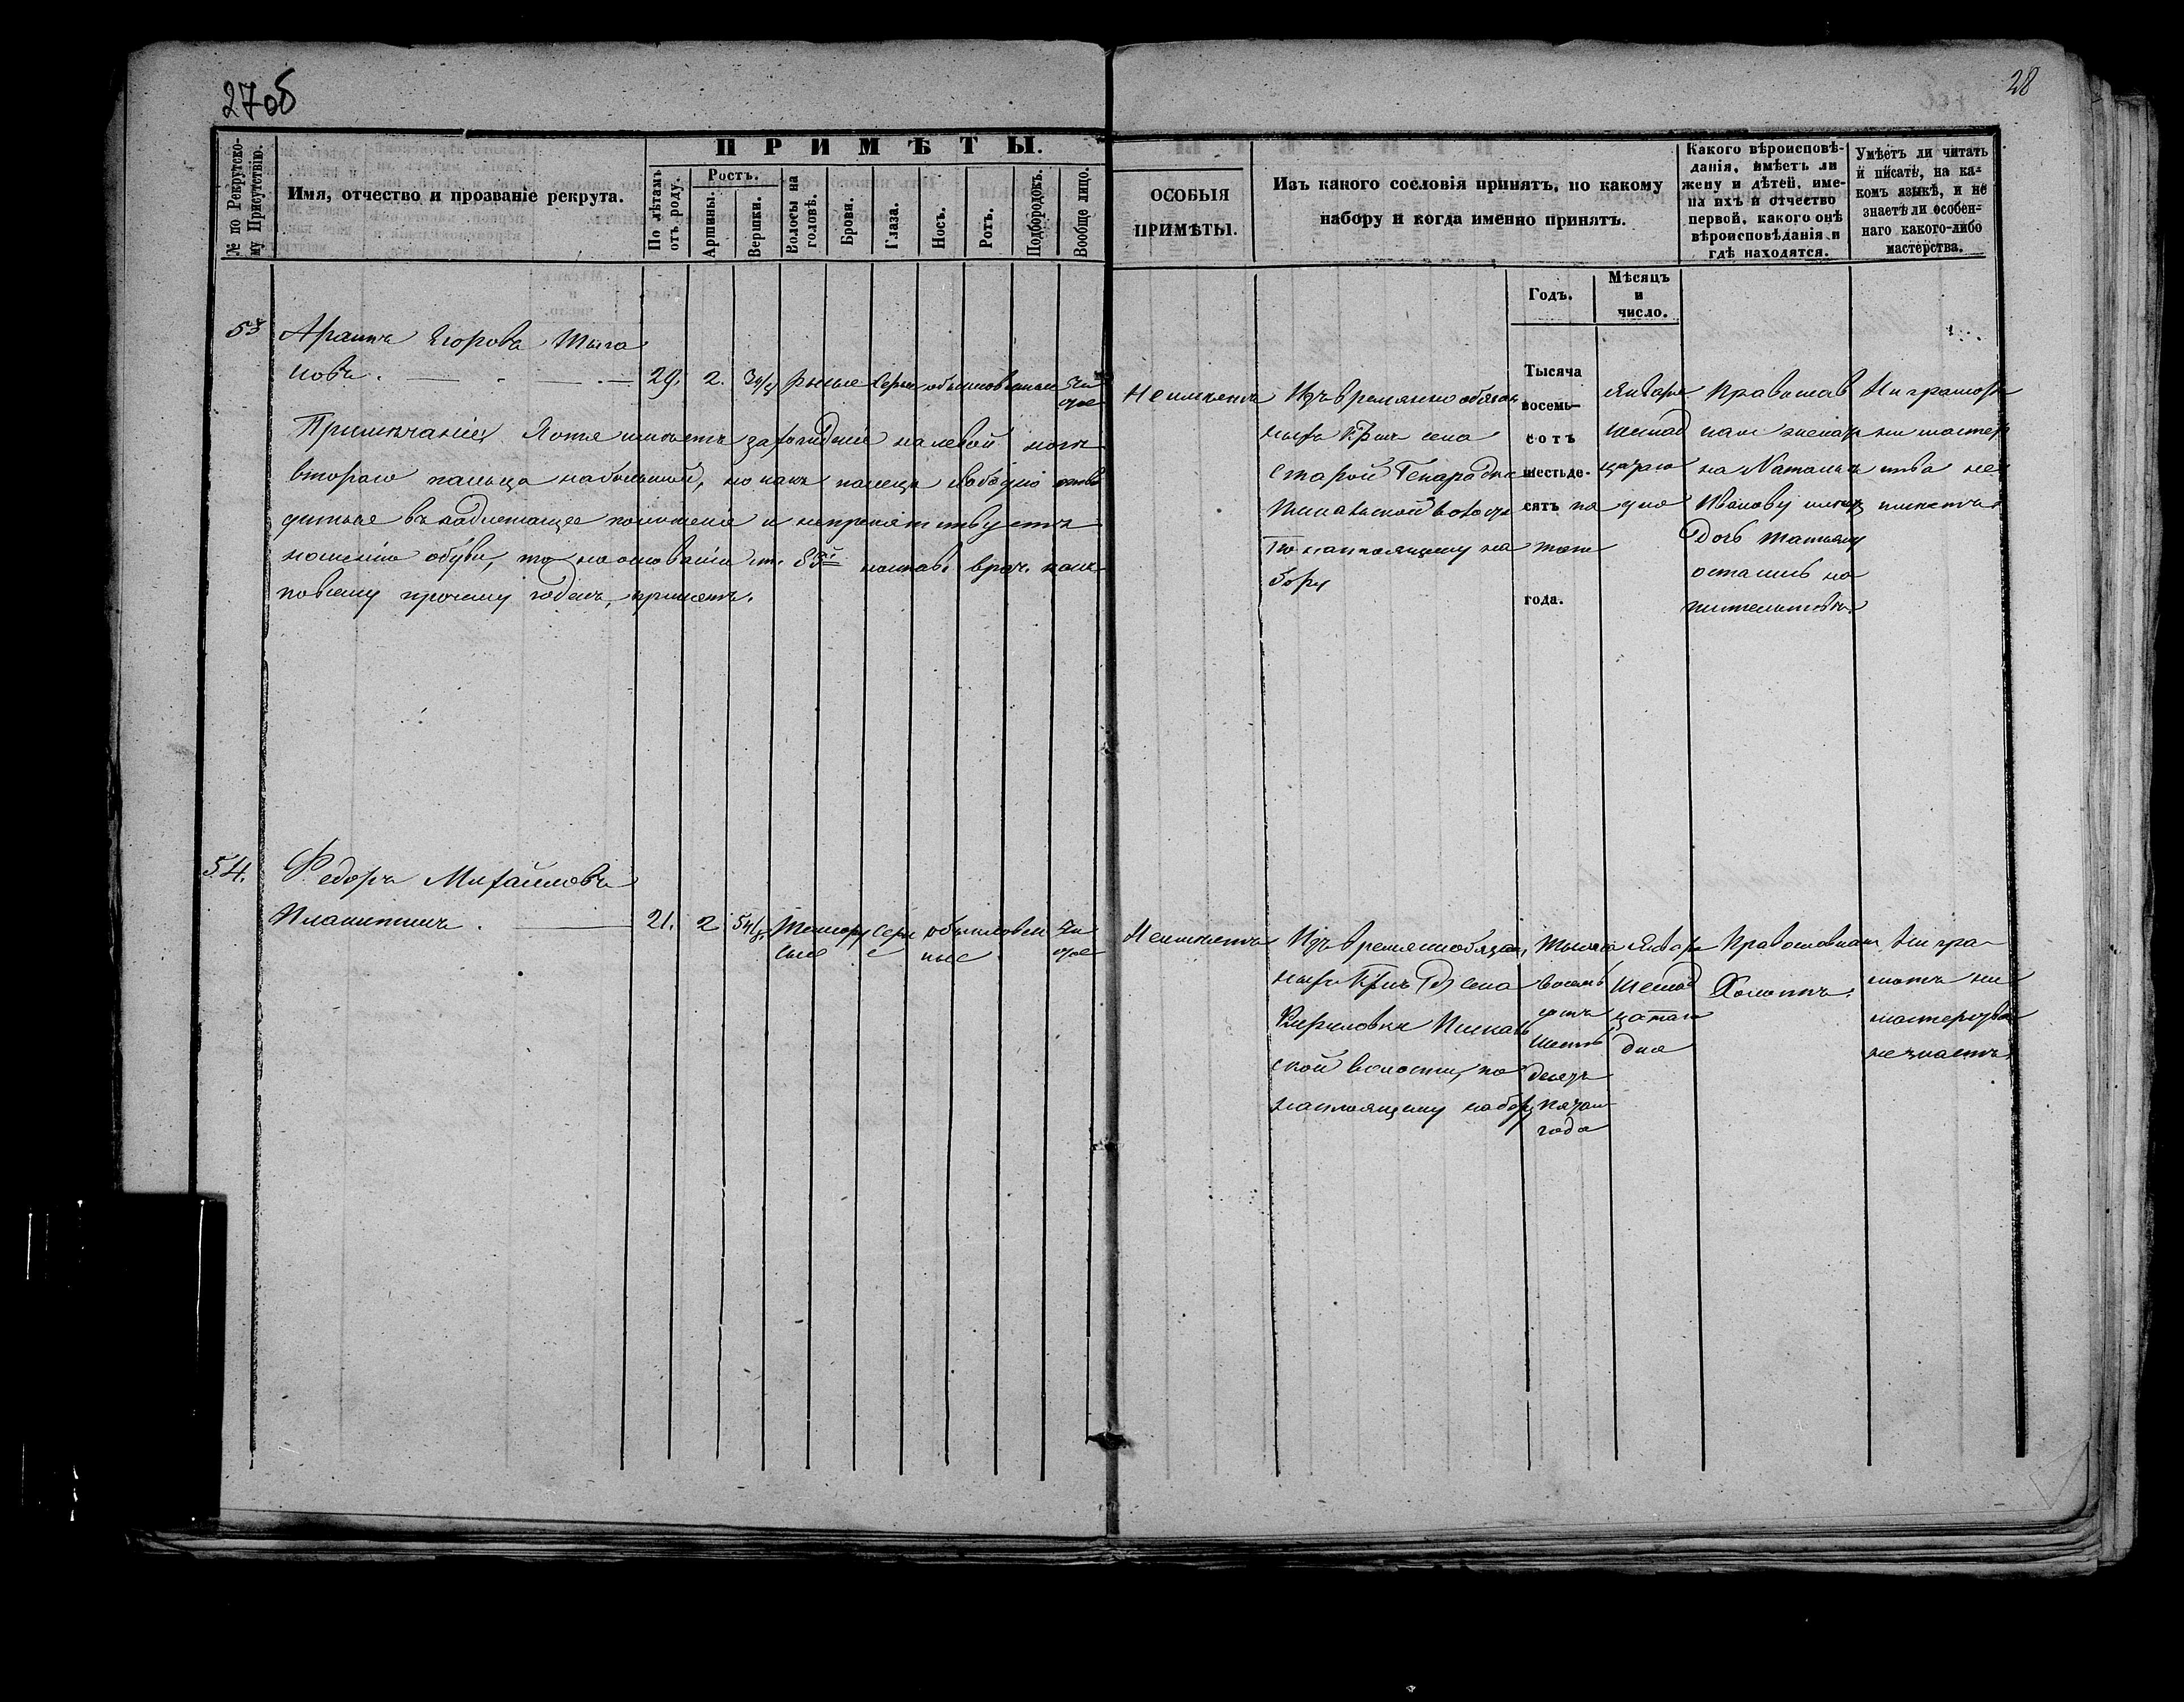 27об
28
№ по Рекрутско-
му Присутствію.
Имя, отчество и прозваніе рекрута.
ПРИМѢТЫ.
По лѣтамъ
отъ роду.
Ростъ.
Аршины.
Вершки.
Волосы на
головѣ.
Брови.
Глаза.
Носъ.
Ротъ.
Подбородокъ.
Вообще лицо.
ОСОБЫЯ
ПРИМѢТЫ.
Изъ какого сословія принятъ, по какому
набору и когда именно принятъ.
Какого вѣроисповѣ-
данія, имѣетъ ли
жену и дѣтей, име-
на ихъ и отчество
первой, какого онѣ
вѣроисповѣданія и
гдѣ находятся.
Умѣетъ ли читать
и писать, на ка-
комъ языкѣ, и не
знаетъ ли особен-
наго какого-либо
мастерства.
Годъ.
Мѣсяцъ
и
число.
53
Егорова Цыга
новъ.
29. 2. 3 4/8 Русые Серые обыкновенные Чи
стое
Примѣчаніе. Хотя имѣетъ на левой ноге
втораго пальца на большой, но какъ палецъ свободно отво
дится въ надлежащее положеніе и непрепятствуетъ
ношенію обуви, то на основаніи ст. 83й настав. врач. какъ
по всему прочему годенъ, принятъ.
Неимѣетъ
Изъ временно обязан
ныхъ Крт. села
Старой
волости
По настоящему на
бору
Тысяча
восемь-
сотъ
шестьде-
сятъ пя
таго
года.
Января
шестнад
цатаго
дня
Православ
наго женатъ
на Натальи
Ивановой имеетъ
Дочь Татьяну
остались на
жительствѣ
Ни грамоты
ни мастер
ства не
имѣетъ
54.
Федоръ Михайловъ
21. 2 5 4/8 Темнору Серы обыкновен Чи
сые е ные стое
Неимѣетъ
Изъ временнообязан
ныхъ Крт. села
Кириловки
ской волости, по
настоящему набору
Тысяча
восемь
сотъ
шесть
десятъ
пятаго
года
Января
шестнад
цатаго
дня
Православнаго
Холостъ.
Ни гра-
моты ни
мастерства
не знаетъ